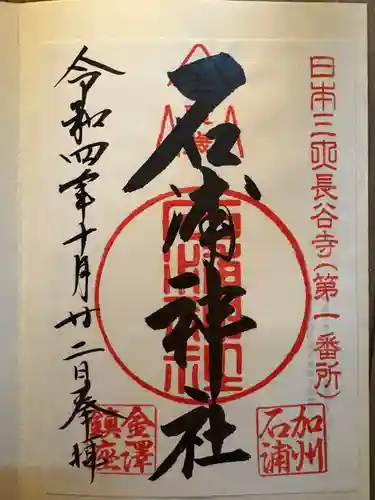 日本三大長谷寺(第一番所)
石浦神社
加州
石浦
令和四年十月廿二日奉拝
金澤
鎮座